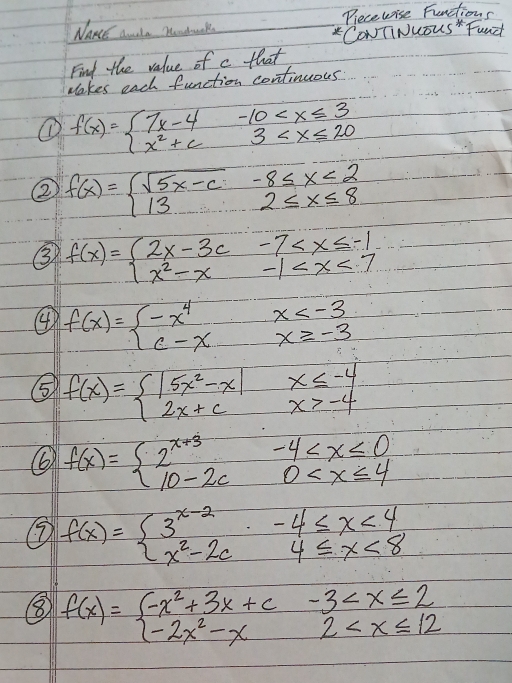 Piecewise Functions
NAME
*CONTINUOUS* Funct
Find the value of c that
Makes each function continuous.
① f(x) = { 7x-4 -10 < x ≤ 3
x²+c 3 < x ≤ 20
② f(x) = { √5x-c -8 ≤ x < 2
13 2 ≤ x ≤ 8
③ f(x) = { 2x-3c -7 < x ≤ -1
x²-x -1 < x < 7
④ f(x) = { -x⁴ x < -3
c-x x ≥ -3
⑤ f(x) = { |5x²-x| x ≤ -4
2x+c x > -4
⑥ f(x) = { 2^(x+3) -4 < x ≤ 0
10-2c 0 < x ≤ 4
⑦ f(x) = { 3^(x-2) -4 ≤ x < 4
x²-2c 4 ≤ x < 8
⑧ f(x) = { -x²+3x+c -3 < x ≤ 2
-2x²-x 2 < x ≤ 12